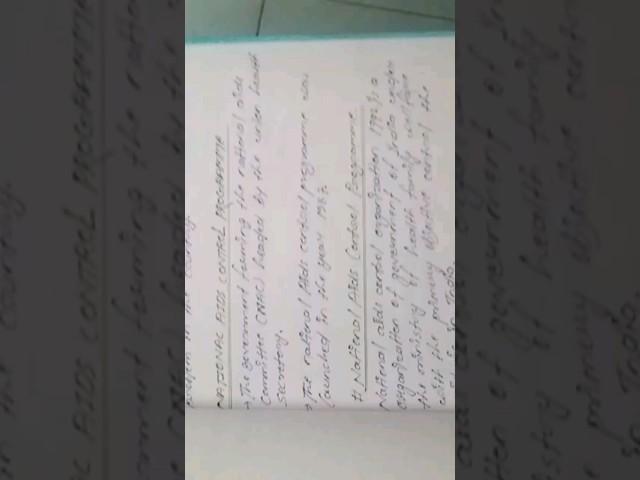 problem in the country.
NATIONAL AIDS CONTROL PROGRAMME
→ The government forming the national aids
committee (NAC) headed by the union health
secretary.
→ The national Aids control programme was
launched in the year 1987.
# National Aids Control Programme
National aids control organization 1992 is a
organization of government of India under
the ministry of health family welfare
with the primary effective control the
in India.